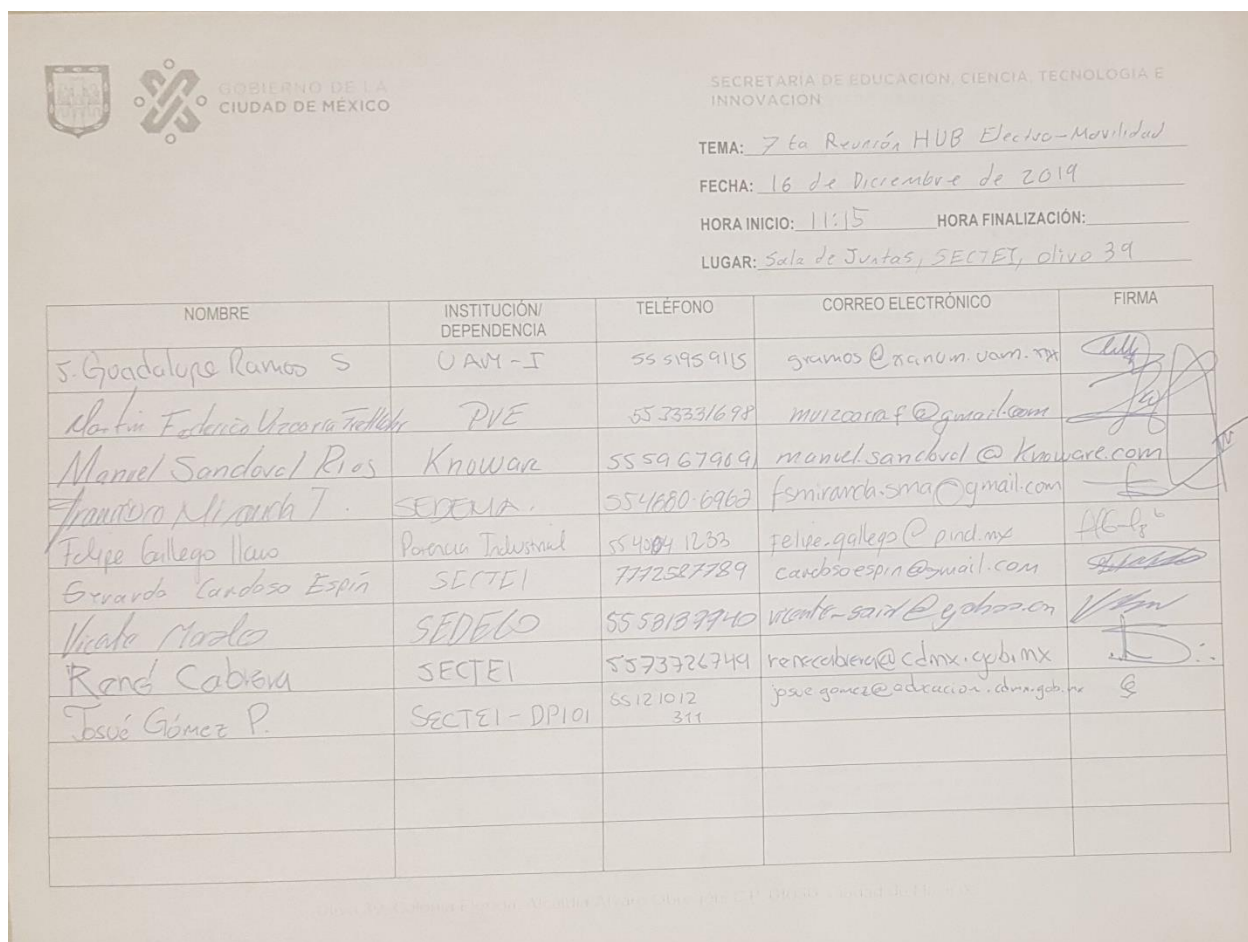 GOBIERNO DE LA
CIUDAD DE MÉXICO
SECRETARÍA DE EDUCACIÓN, CIENCIA, TECNOLOGÍA E
INNOVACIÓN
TEMA: 7ta Reunión HUB Electro-Movilidad
FECHA: 16 de Diciembre de 2019
HORA INICIO: 11:15 HORA FINALIZACIÓN:
LUGAR: Sala de Juntas, SECTEI, olivo 39
NOMBRE INSTITUCIÓN/ DEPENDENCIA TELÉFONO CORREO ELECTRÓNICO FIRMA
J. Guadalupe Ramos S UAM-I 55 51959115 gramos@xanum.uam.mx
Martin Federico PVE 55 33331698 muizcarraf@gmail.com
Manuel Sandoval Rios Knoware 555967969 manuel.sandoval@Knoware.com
Miranda T. SEDEMA. 554680-6962 fsmiranda.sma@gmail.com
Felipe Gallego Llano Potencia Industrial 1233 felipe.gallego@pind.mx
Gerardo Cardoso Espin SECTEI 7772587789 cardosoespin@gmail.com
Vicente Morales SEDECO 5558137940
René Cabrera SECTEI 5573726749 renecabrera@cdmx.gob.mx
Josué Gómez P. SECTEI-DPIOI 55121012 311 josue.gomez@educacion.cdmx.gob.mx